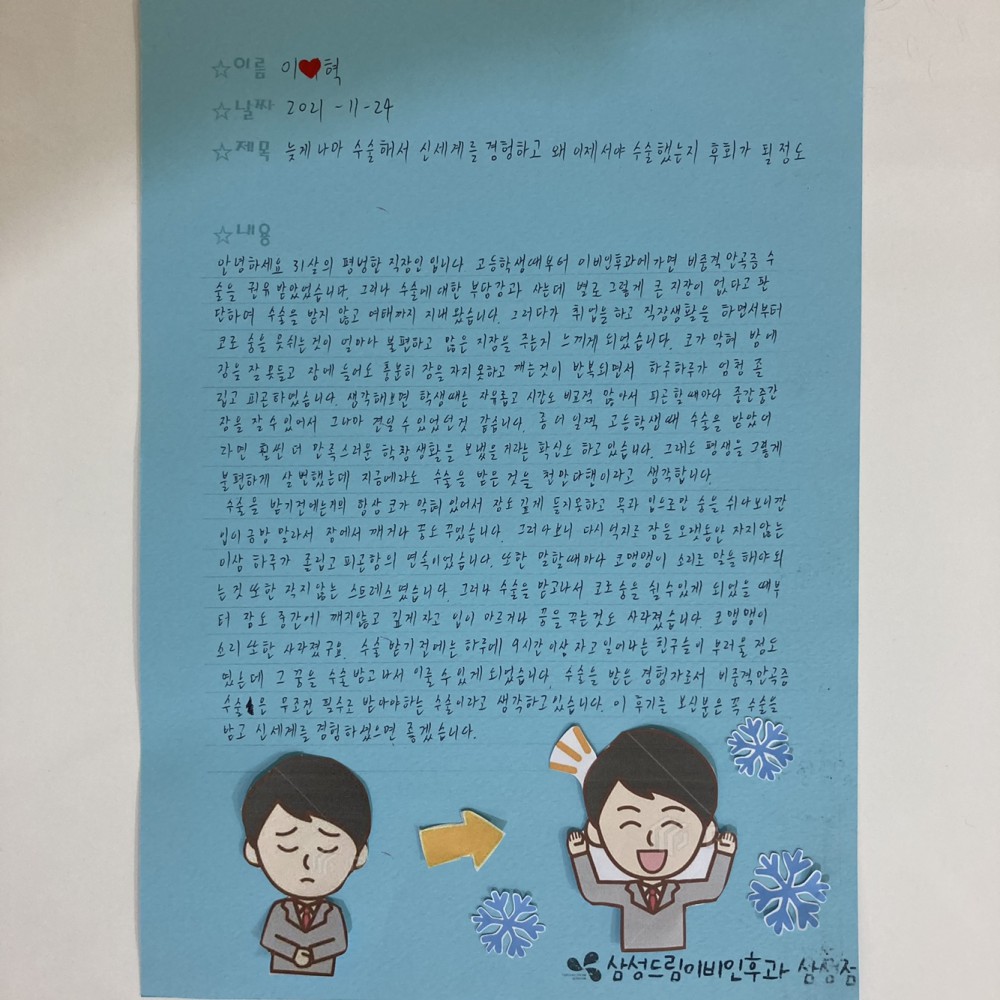 ☆이름 이♥혁
☆날짜 2021-11-24
☆제목 늦게나마 수술해서 신세계를 경험하고 왜 이제서야 수술했는지 후회가 될 정도
☆내용
안녕하세요 31살의 평범한 직장인입니다 고등학생때부터 이비인후과에가면 비중격만곡증 수
술을 권유받았었습니다. 그러나 수술에 대한 부담감과 사는데 별로 그렇게 큰 지장이 없다고 판
단하여 수술을 받지 않고 여태까지 지내왔습니다. 그러다가 취업을하고 직장생활을 하면서부터
코로 숨을 못쉬는것이 얼마나 불편하고 많은 지장을 주는지 느끼게 되었습니다. 코가 막혀 밤에
잠을 잘 못들고 잠에 들어도 충분히 잠을 자지못하고 깨는것이 반복되면서 하루하루가 엄청 졸
립고 피곤하였습니다. 생각해보면 학생때는 자유롭고 시간도 비교적 많아서 피곤할때마다 중간중간
잠을 잘 수 있어서 그나마 견딜수 있었던것 같습니다. 좀 더 일찍 고등학생때 수술을 받았더
라면 훨씬 더 만족스러운 학창생활을 보냈을거라는 확신도 하고있습니다. 그래도 평생을 그렇게
불편하게 살 번했는데 지금에라도 수술을 받은 것을 천만다행이라고 생각합니다.
수술을 받기전에는거의 항상 코가 막혀 있어서 잠도 깊게 들지못하고 목과 입으로만 숨을 쉬다보니깐
입이 금방 말라서 잠에서 깨거나 꿈도 꾸었습니다. 그러다보니 다시 억지로 잠을 오랫동안 자지않는
이상 하루가 졸립고 피곤함의 연속이었습니다. 또한 말할때마다 코맹맹이 소리로 말을 해야되
는것 또한 작지 않는 스트레스였습니다. 그러나 수술을 받고나서 코로 숨을 쉴 수있게 되었을 때부
터 잠도 중간에 깨지않고 깊게 자고 입이 마르거나 꿈을 꾸는것도 사라졌습니다 코맹맹이
소리 또한 사라졌구요. 수술 받기 전에는 하루에 9시간 이상 자고 일어나는 친구들이 부러울 정도
였는데 그 꿈을 수술 받고나서 이룰 수 있게 되었습니다. 수술을 받은 경험자로서 비중격만곡증
수술은 무조건 필수로 받아야하는 수술이라고 생각하고있습니다. 이 후기를 보신분은 꼭 수술을
받고 신세계를 경험하셨으면 좋겠습니다.
삼성드림이비인후과 삼성점